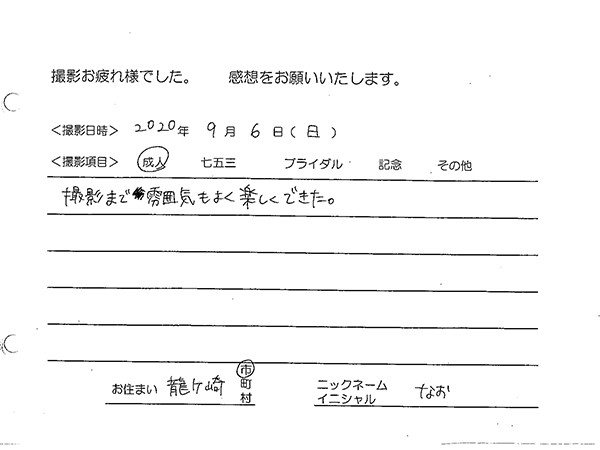 撮影お疲れ様でした。 感想をお願いいたします。
<撮影日時> 2020年 9月 6日(日)
<撮影項目> 成人 七五三 ブライダル 記念 その他
撮影まで雰囲気もよく楽しくできた。
お住まい 龍ケ崎 市町村 ニックネーム イニシャル なお